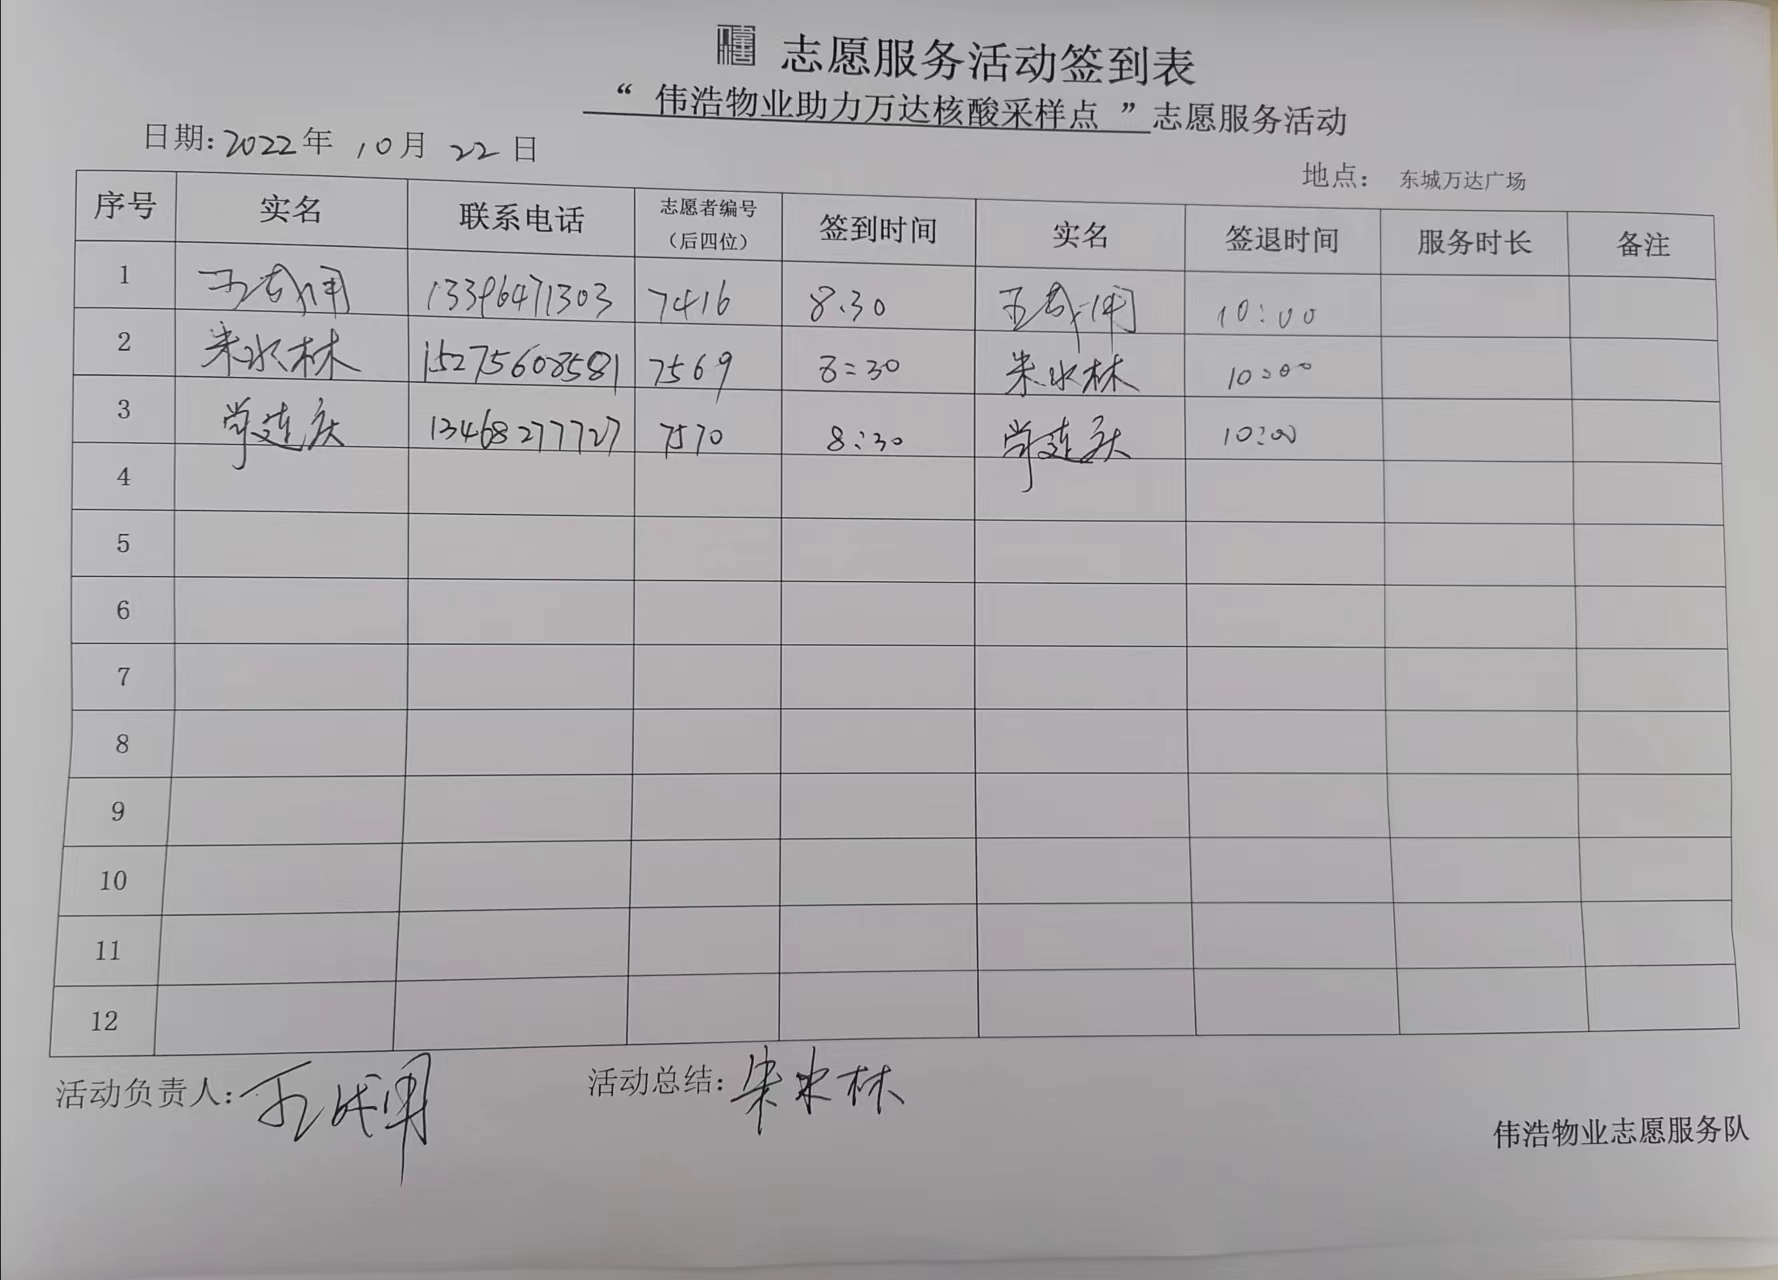 志愿服务活动签到表
“ 伟浩物业助力万达核酸采样点 ”志愿服务活动
日期:2022年 10月 22日
地点: 东城万达广场
序号 实名 联系电话 志愿者编号（后四位） 签到时间 实名 签退时间 服务时长 备注
1 王 13396471303 7416 8.30 王 10:00
2 朱水林 15275608581 7569 8:30 朱水林 10:00
3 连庆 13468277727 7570 8:30 连庆 10:00
4
5
6
7
8
9
10
11
12
活动负责人: 王
活动总结: 朱水林
伟浩物业志愿服务队